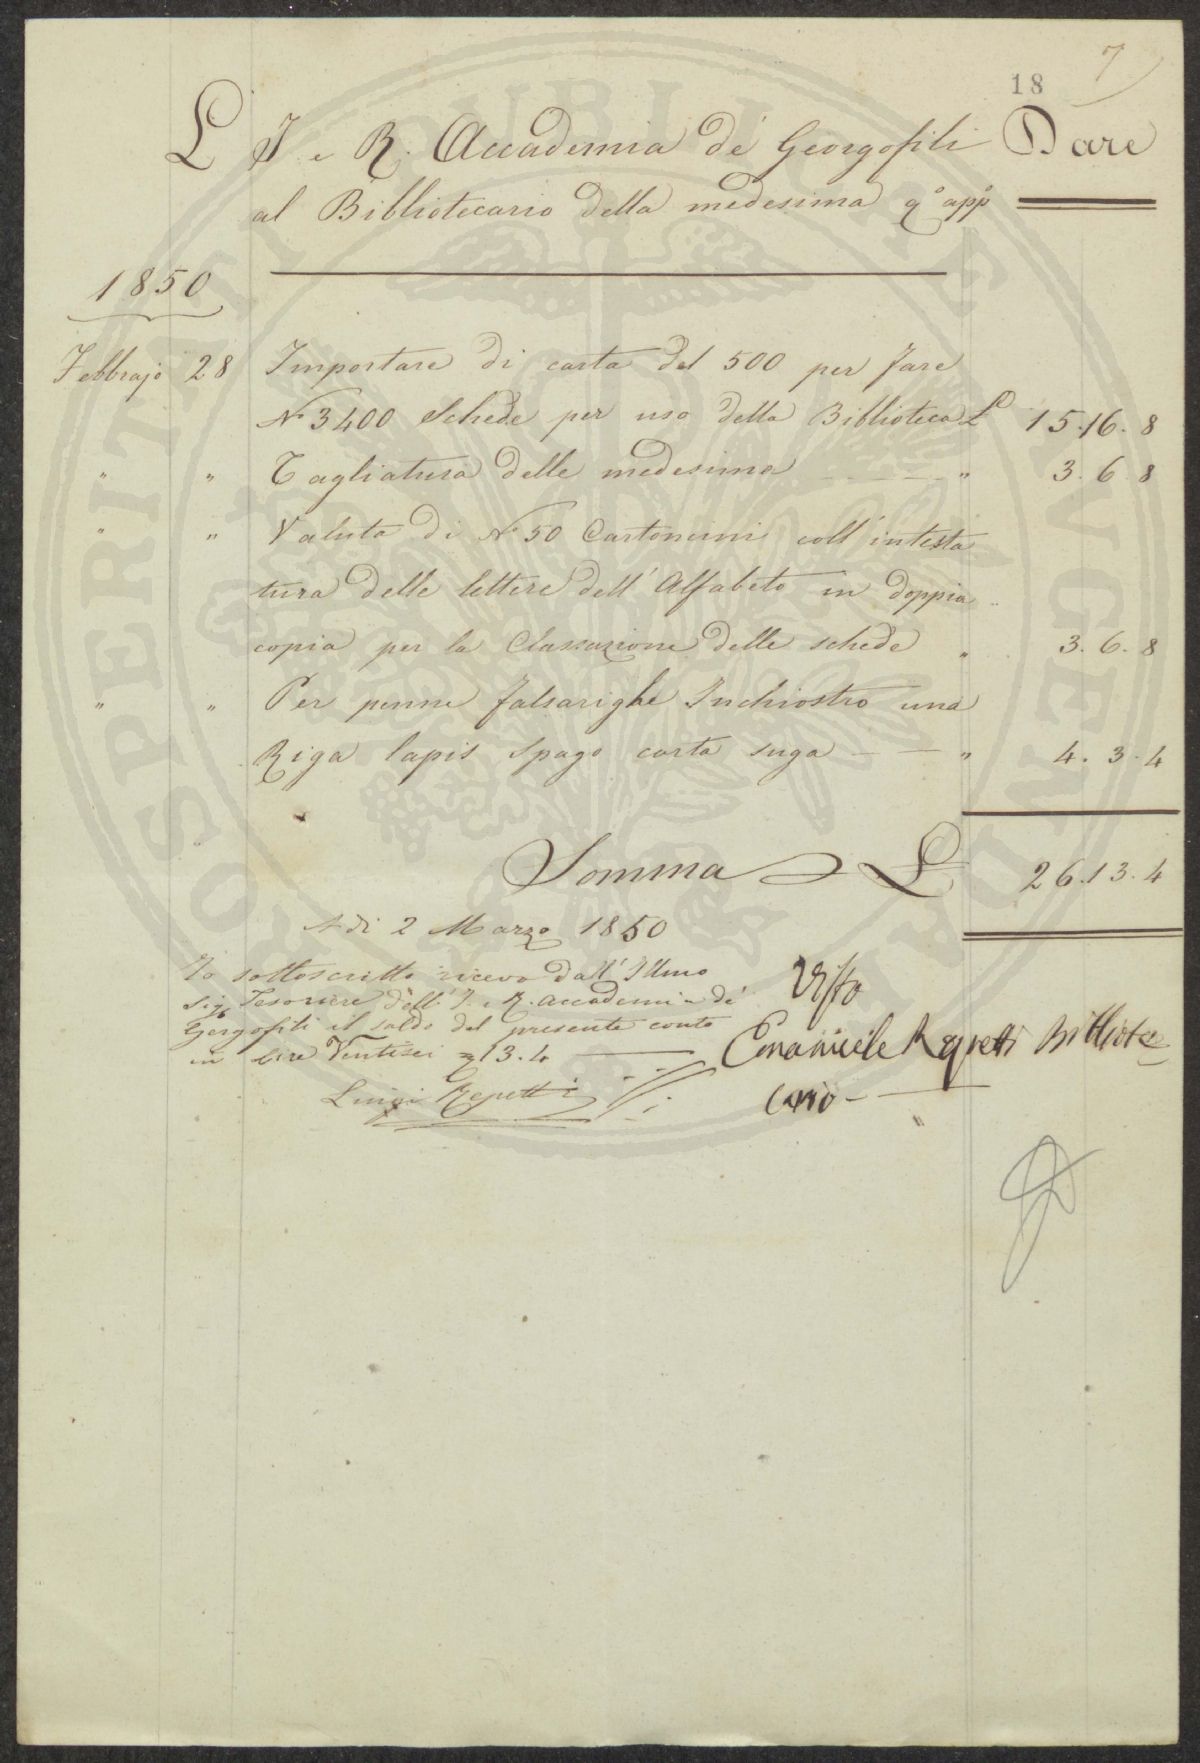 7
18
L' I. e R. Accademia de' Georgofili Dare
al Bibliotecario della medesima qº appº
1850
Febbrajo 28 Importare di carta del 500 per fare
Nº 3400 Schede per uso della Biblioteca £ 15.16.8
" " Tagliatura delle medesime " 3.6.8
" " Valuta di Nº 50 Cartoncini coll' intesta
tura delle lettere dell' Alfabeto in doppia
copia per la Classazione delle schede " 3.6.8
" " Per penne falsarighe Inchiostro una
Riga lapis Spago carta suga " 4.3.4
Somma £ 26.13.4
A dì 2 Marzo 1850
Io sottoscritto ricevo dall' Illmo
Sig. Tesoriere dell' I. e R. Accademia de'
Gergofili il saldo del presente conto
in lire Ventisei 13.4
Luigi Repetti
Visto
Emanuele Repetti Bibliote
cario
PROSPERITATI PUBLICAE AUGENDAE